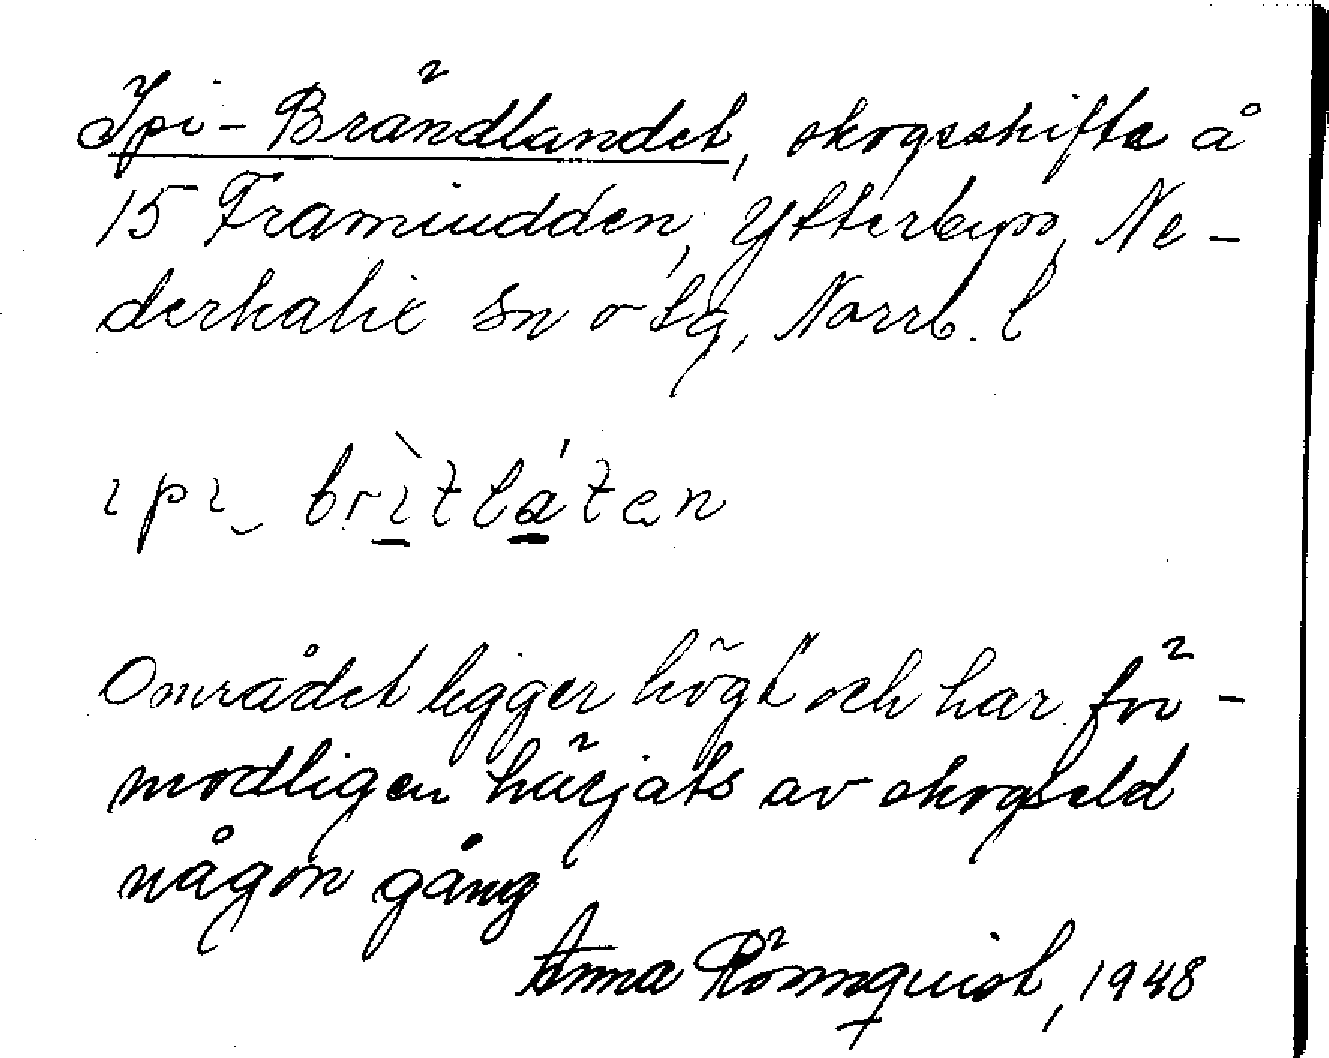 Ipi-Brändlandet, skogsskifte å
15 Framiudden, Ytterbyn, Ne-
derkalix sn o tg, Norrb. l
ıpı‿ brìtláten
Området ligger högt och har för-
modligen härjats av skogseld
någon gång
Anna Rönnquist, 1948